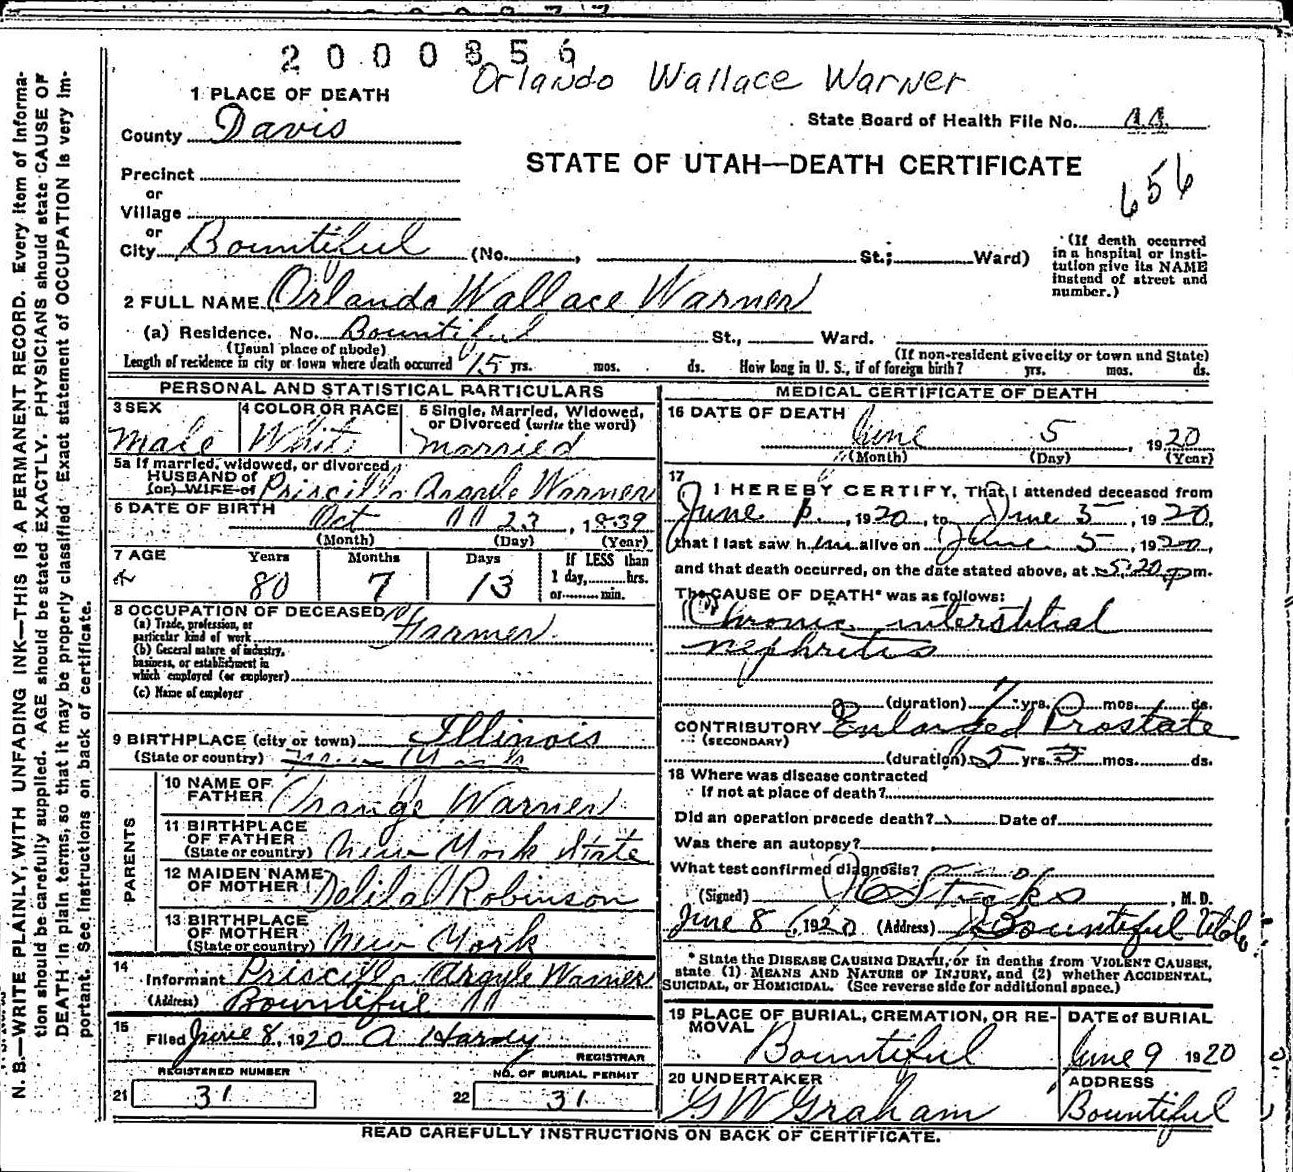 2000856
Orlando Wallace Warner
1 PLACE OF DEATH
County Davis
State Board of Health File No.
STATE OF UTAH—DEATH CERTIFICATE
656
Precinct
or
Village
or
City Bountiful (No. , St.; Ward)
(If death occurred in a hospital or institution give its NAME instead of street and number.)
2 FULL NAME Orlando Wallace Warner
(a) Residence. No. Bountiful St., Ward.
(Usual place of abode) (If non-resident give city or town and State)
Length of residence in city or town where death occurred 15 yrs. mos. ds. How long in U. S., if of foreign birth? yrs. mos. ds.
PERSONAL AND STATISTICAL PARTICULARS
3 SEX 4 COLOR OR RACE 5 Single, Married, Widowed, or Divorced (write the word)
Male White Married
5a If married, widowed, or divorced
HUSBAND of
(or) WIFE of Priscilla Argyle Warner
6 DATE OF BIRTH Oct 23, 1839
(Month) (Day) (Year)
7 AGE Years Months Days If LESS than
80 7 13 1 day, hrs.
or min.
8 OCCUPATION OF DECEASED
(a) Trade, profession, or
particular kind of work Farmer
(b) General nature of industry,
business, or establishment in
which employed (or employer)
(c) Name of employer
9 BIRTHPLACE (city or town) Illinois
(State or country) New York
PARENTS
10 NAME OF
FATHER Orange Warner
11 BIRTHPLACE
OF FATHER
(State or country) New York State
12 MAIDEN NAME
OF MOTHER Delila Robinson
13 BIRTHPLACE
OF MOTHER
(State or country) New York
14
Informant Priscilla Argyle Warner
(Address) Bountiful
15
Filed June 8, 1920 A Hardy
REGISTRAR
REGISTERED NUMBER NO. OF BURIAL PERMIT
21 31 22 31
MEDICAL CERTIFICATE OF DEATH
16 DATE OF DEATH
June 5 1920
(Month) (Day) (Year)
17
I HEREBY CERTIFY, That I attended deceased from
June , 1920, to June 5, 1920,
that I last saw him alive on June 5, 1920,
and that death occurred, on the date stated above, at 5:20 pm.
The CAUSE OF DEATH* was as follows:
Chronic interstitial
nephritis
(duration) yrs. mos. ds.
CONTRIBUTORY Enlarged Prostate
(SECONDARY)
(duration) 5 yrs. mos. ds.
18 Where was disease contracted
If not at place of death?
Did an operation precede death? Date of
Was there an autopsy?
What test confirmed diagnosis?
(Signed) Stocks, M.D.
June 8, 1920 (Address) Bountiful Utah
* State the DISEASE CAUSING DEATH, or in deaths from VIOLENT CAUSES,
state (1) MEANS AND NATURE OF INJURY, and (2) whether ACCIDENTAL,
SUICIDAL, or HOMICIDAL. (See reverse side for additional space.)
19 PLACE OF BURIAL, CREMATION, OR RE- DATE of BURIAL
MOVAL
Bountiful June 9 1920
20 UNDERTAKER ADDRESS
G W Graham Bountiful
READ CAREFULLY INSTRUCTIONS ON BACK OF CERTIFICATE.
N. B.—WRITE PLAINLY, WITH UNFADING INK—THIS IS A PERMANENT RECORD. Every item of informa-
tion should be carefully supplied. AGE should be stated EXACTLY. PHYSICIANS should state CAUSE OF
DEATH in plain terms, so that it may be properly classified. Exact statement of OCCUPATION is very im-
portant. See instructions on back of certificate.